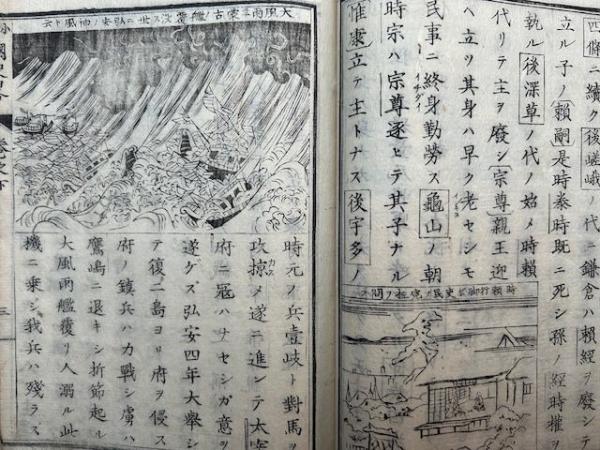 四條ニ續ク後嵯峨ノ代ニ鎌倉ハ賴經ヲ廢シテ
立ル子ノ賴嗣是時泰時既ニ死シ孫ノ經時權ヲ
執ル後深草ノ代ノ始メ時賴
代リテ主ヲ廢シ宗尊親王迎
ヘ立ツ其身ハ早ク老セシモ
民事ニ終身勤勞ス龜山ノ朝
時宗ハ宗尊逐ヒテ其子ナル
惟康立テ主トナス後宇多ノ
時賴行脚シ吏民ノ寃枉ヲ問フ
大風雨ニ蒙古ノ艦覆沒ス世ニ弘安ノ神風ト云
時元ノ兵壹岐ト對馬ヲ
攻掠メ遂ニ進ンテ太宰
府ニ冦ハナセシガ意ヲ
遂ゲズ弘安四年大舉シ
テ復二島ヨリ府ヲ侵ス
府ノ鎮兵ハ力戰シ虜ハ
鷹嶋ニ退キシ折節起ル
大風雨艦覆リ人溺ル此
機ニ乗シ我兵ハ殘ラス
三